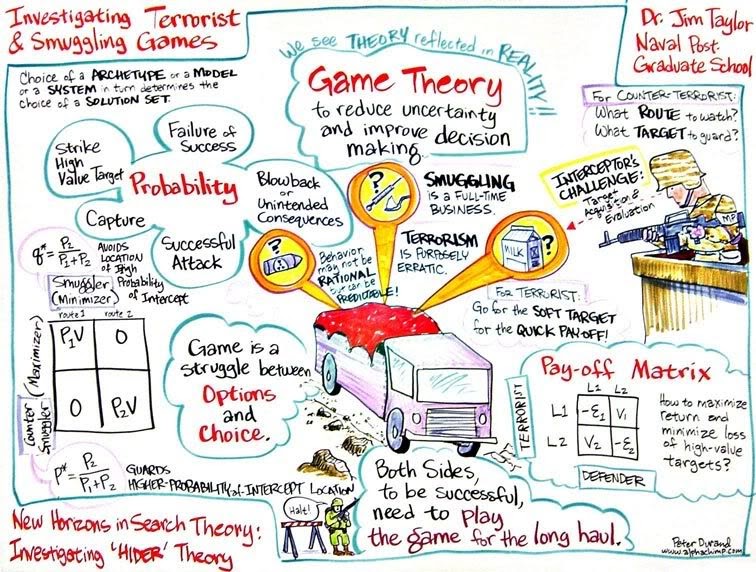 Investigating Terrorist
& Smuggling Games
Choice of a ARCHETYPE or a MODEL
or a SYSTEM in turn determines the
choice of a SOLUTION SET.
We see THEORY reflected in REALITY!!
Game Theory
to reduce uncertainty
and improve decision
making
Dr. Jim Taylor
Naval Post.
Graduate School
For COUNTER-TERRORIST:
What ROUTE to watch?
What TARGET to guard?
INTERCEPTOR'S
CHALLENGE:
Target
Acquisition &
Evaluation
MP
Probability
Strike
High
Value Target
Failure of
Success
Blowback
or
Unintended
Consequences
Capture
Successful
Attack
?
SMUGGLING
IS A FULL-TIME
BUSINESS.
?
Behavior
may not be
RATIONAL
but can be
PREDICTABLE!
TERRORISM
IS PURPOSELY
ERRATIC.
MILK
?
For TERRORIST:
Go for the SOFT TARGET
for the QUICK PAY-OFF!
q* = P2
P1+P2
AVOIDS
LOCATION
OF High
Probability
of Intercept
Smuggler
(Minimizer)
route 1
route 2
Counter Smuggler (Maximizer)
P1V
0
0
P2V
P* = P2
P1+P2
GUARDS
HIGHER-PROBABILITY-of-INTERCEPT LOCATION
Game is a
struggle between
Options
and
Choice.
Pay-off Matrix
L1
L2
TERRORIST
L1
-E1
V1
L2
V2
-E2
DEFENDER
How to maximize
return and
minimize loss
of high-value
targets?
Halt!
Both Sides,
to be successful,
need to play
the game for the long haul.
New Horizons in Search Theory:
Investigating 'HIDER' Theory
Peter Durand
www.alphachimp.com